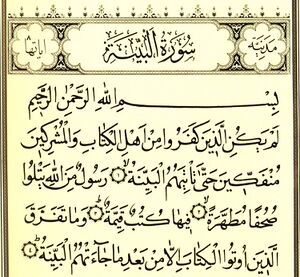 مدنية سورة البينة اياتها ٨
بسم الله الرحمن الرحيم
لَمْ يَكُنِ الَّذِينَ كَفَرُوا مِنْ اَهْلِ الْكِتَابِ وَالْمُشْرِكِينَ
مُنْفَكِّينَ حَتّٰى تَاْتِيَهُمُ الْبَيِّنَةُ ۝١ رَسُولٌ مِنَ اللّٰهِ يَتْلُوا
صُحُفًا مُطَهَّرَةً ۝٢ فِيهَا كُتُبٌ قَيِّمَةٌ ۝٣ وَمَا تَفَرَّقَ
الَّذِينَ اُوتُوا الْكِتَابَ اِلَّا مِنْ بَعْدِ مَا جَاءَتْهُمُ الْبَيِّنَةُ ۝٤